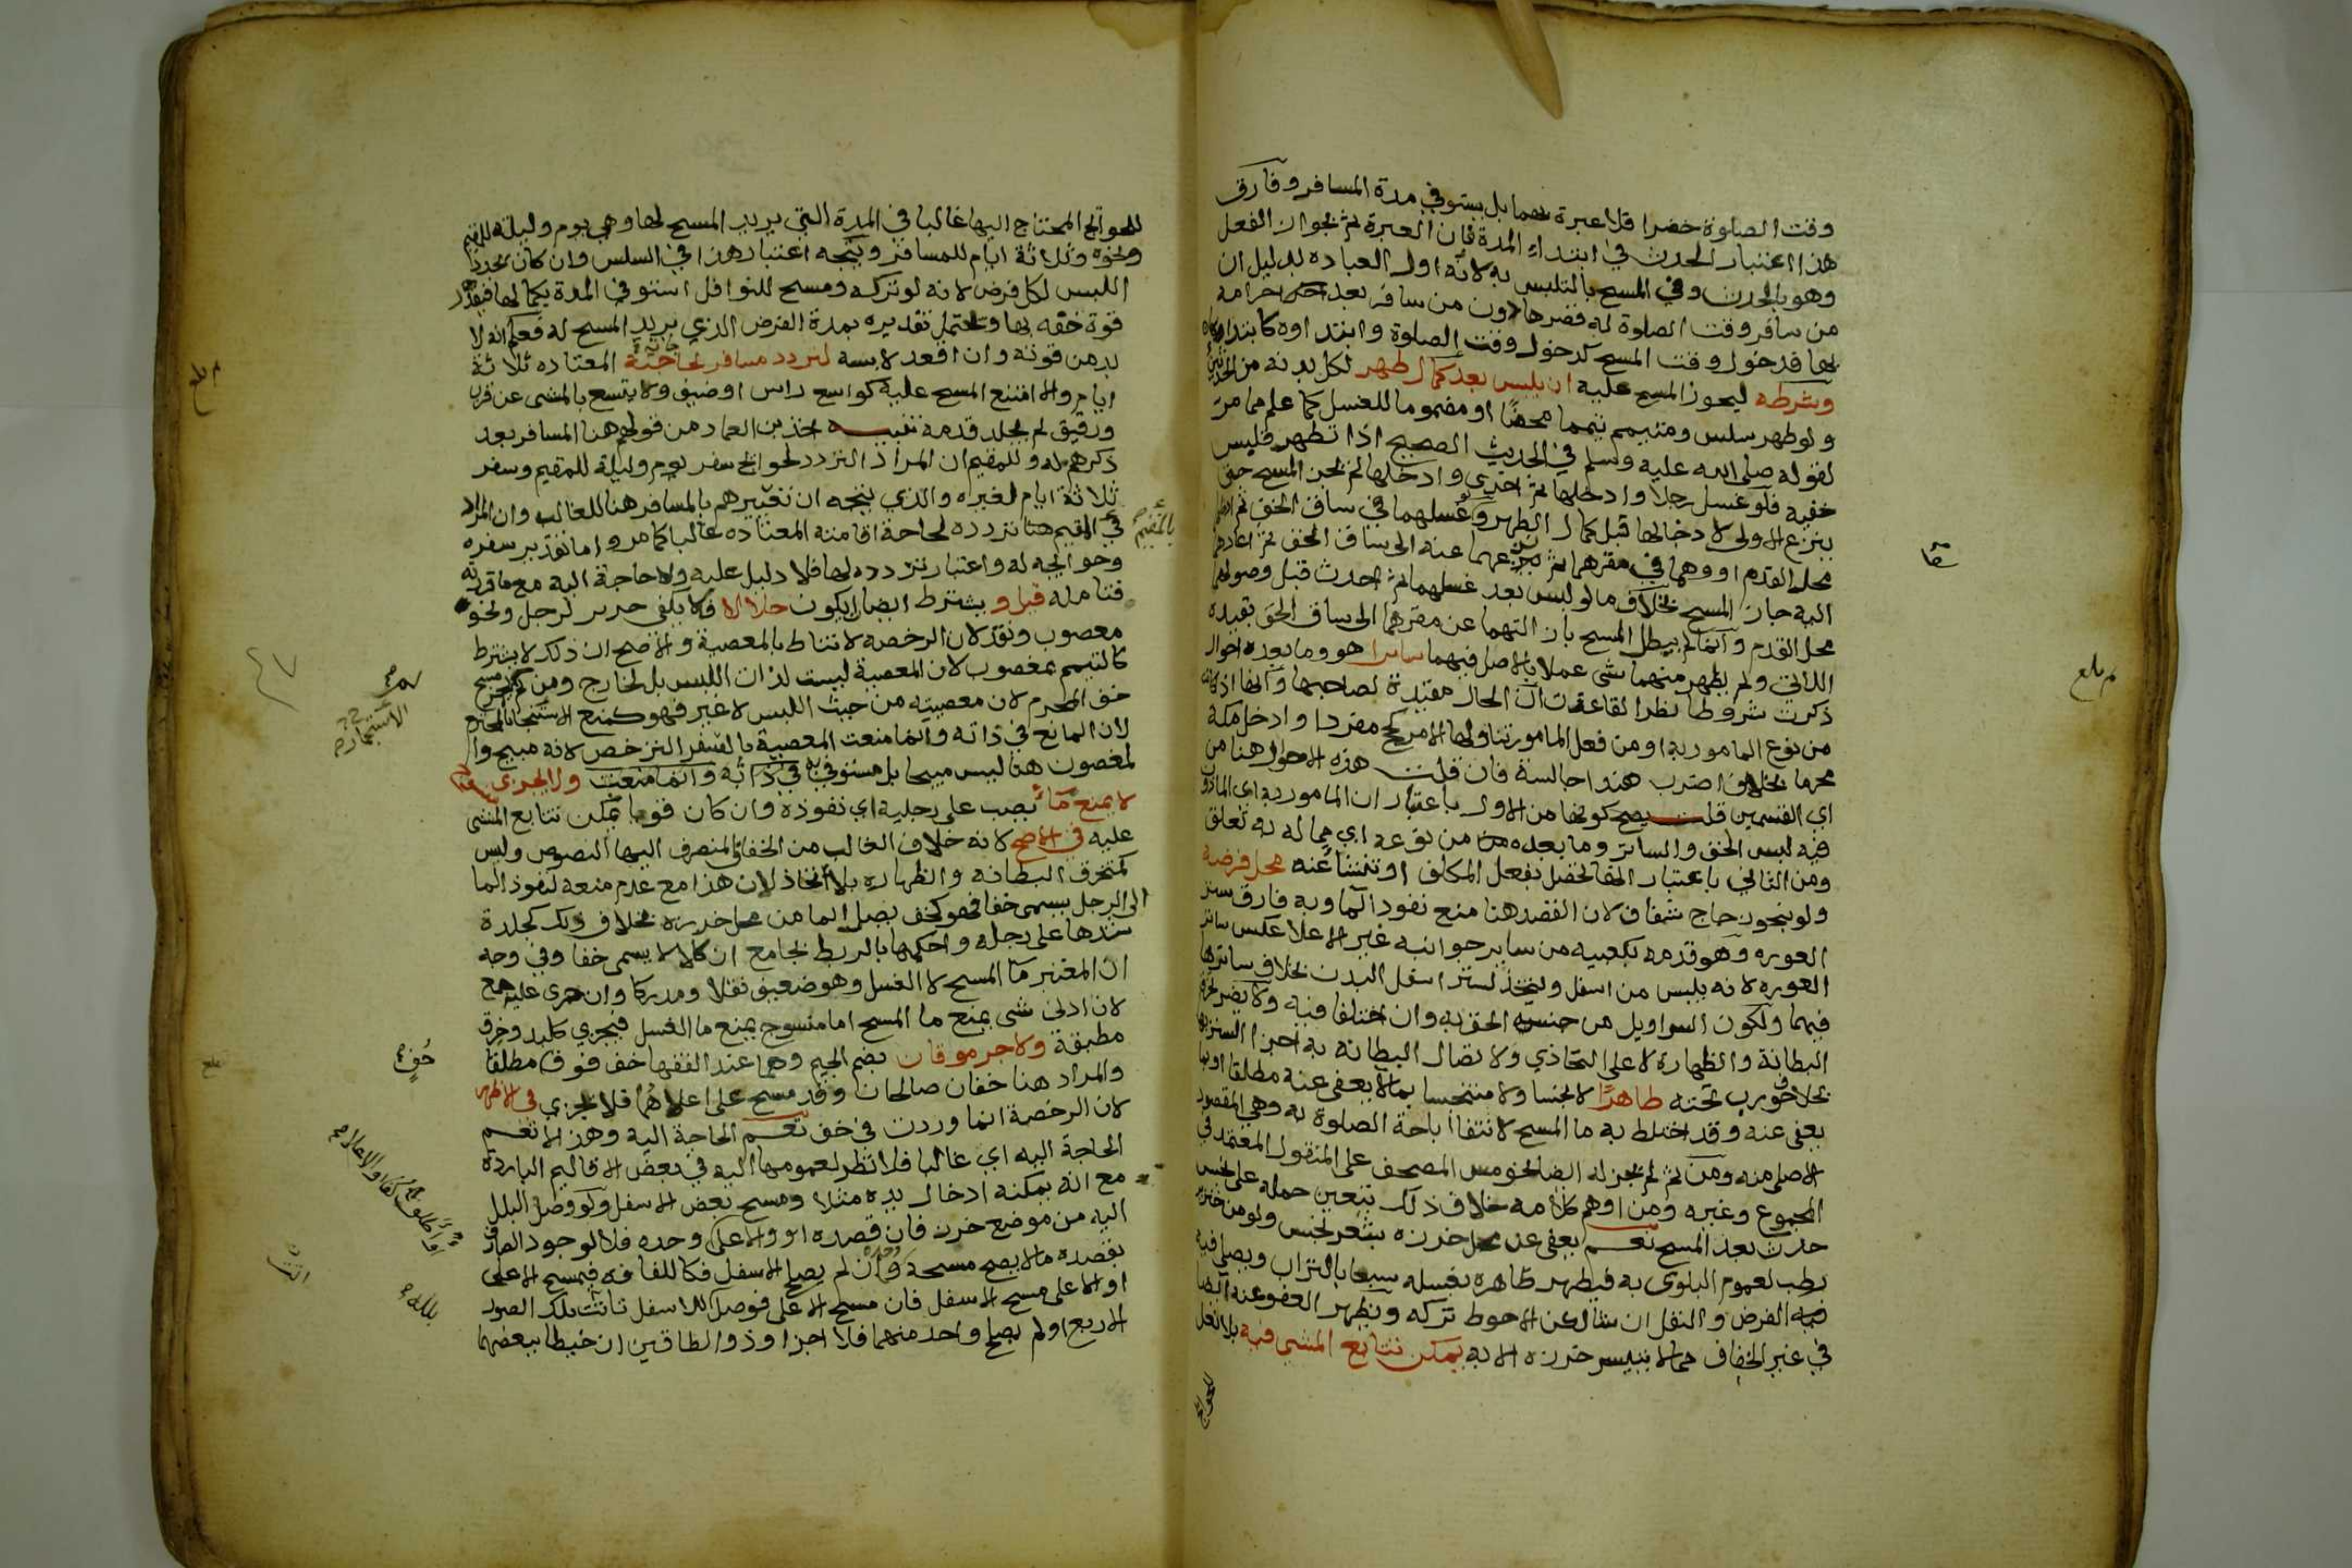 وقت الصلوة حضرا فلا عبرة بهما بل يستوفي مدة المسافر وفارق
هذا اعتبار الحدث في ابتداء المدة فان العبرة ثم بجواز الفعل
وهو بالحدث وفي المسح بالتلبس به لانه اول العباده بدليل ان
من سافر وقت الصلوة له قصرها دون من سافر بعد احرامه
بها فدخول وقت المسح كدخول وقت الصلوة وابتداوه كابتدائها
وشرطه ليجوز المسح عليه ان يلبس بعد كمال طهر لكل بدنه من الحدثين
ولو طهر سلس ومتيمم تيمما محضا او مضموما للغسل كما علم مما مر
لقوله صلى الله عليه وسلم في الحديث الصحيح اذا تطهر فلبس
خفيه فلو غسل رجلا وادخلها ثم اخرى وادخلها لم يجز المسح حتى
ينزع الاولى لادخالها قبل كمال الطهر ولو غسلهما في ساق الخف ثم ادخلهما
محل القدم او وهما في مقرهما ثم نزعهما عنه الى ساق الخف ثم اعادهما
اليه جاز المسح بخلاف ما لو لبس بعد غسلهما ثم احدث قبل وصولهما
محل القدم وانما لم يبطل المسح بازالتهما عن مقرهما الى ساق الخف بقيده
الذاتي ولم يظهر منهما شى عملا بالاصل فيهما ساترا هو وما بعده احوال
ذكرت شروطا نظرا لقاعدة ان الحال مقيدة لصاحبها وانها اذا كانت
من نوع المامور به او من فعل المامور تناولها الامر كحج مفردا وادخل مكة
محرما بخلاف اضرب هندا جالسة فان قلت هذه الاحوال هنا من
اي القسمين قلت يصح كونها من الاول باعتبار ان المامور به اي الماذون
فيه لبس الخف والساتر وما بعده من نوعه اي مما له به تعلق
ومن الثاني باعتبار انها تحصل بفعل المكلف او تنشا عنه محل فرضه
ولو بنحو زجاج شفاف لان القصد هنا منع نفوذ الماء وبه فارق ستر
العوره وهو قدمه بكعبيه من ساير جوانبه غير الاعلا عكس ساتر
العوره لانه يلبس من اسفل ويتخذ لستر اسفل البدن بخلاف ساترها
فيهما ولكون السراويل من جنسه الحق به وان اختلفا فيه ولا يضر تخرق
البطانة والظهارة لا على التحاذي ولا تضال البطانه به اجزا الستر بها
بخلاف جورب تحته طاهرا لا نجسا ولا متنجسا بما لا يعفى عنه مطلقا او بما
يعفى عنه وقد اختلط به ما المسح لانتفاا باحة الصلوة به وهي المقصود
الاصلي منه ومن ثم لم يجز له ايضا نحو مس المصحف على المنقول المعتمد في
المجموع وغيره ومن اوهم كلامه خلاف ذلك يتعين حمله على نجس
حدث بعد المسح نعم يعفى عن محل خرزه بشعر نجس ولو من خنزير
رطب لعموم البلوى به فيطهر ظاهره بغسله سبعا بالتراب ويصلي فيه
فيه الفرض والنفل ان شا لكن الاحوط تركه ويظهر العفو عنه ايضا
في غير الخفاف مما لا يتيسر خرزه الا به يمكن تتابع المشي فيه بلا نعل
للحوائج
للحوائج المحتاج اليها غالبا في المدة التي يريد المسح لها وهي يوم وليلة للمقيم
ونحوه وثلاثة ايام للمسافر ويتجه اعتبار هذا في السلس وان كان يجدد
اللبس لكل فرض لانه لو تركه ومسح للنوافل استوفى المدة بكمالها فيقدر
قوة خفه بها ويحتمل تقديره بمدة الفرض الذي يريد المسح له فعلم انه لا
بد من قوته وان اقعد لابسه لتردد مسافر لحاجته المعتاده ثلاثة
ايام والا امتنع المسح عليه كواسع راس او ضيق ولا يتسع بالمشى عن قرب
ورقيق لم يجلد قدمه تنبيه اخذ ابن العماد من قولهم هنا المسافر بعد
ذكرهم له وللمقيم ان المراد التردد لحوائج سفر يوم وليلة للمقيم وسفر
ثلاثة ايام لغيره والذي يتجه ان تعبيرهم بالمسافر هنا للغالب وان المراد
في المقيم هنا تردده لحاجة اقامته المعتاده غالبا كما مر واما تقدير سفره
وحوايجه له واعتبار تردده لها فلا دليل عليه ولا حاجة اليه مع ما قررته
فتامله قيل و يشترط ايضا ان يكون حلالا فلا يكفي حرير لرجل ونحو
مغصوب ونقد لان الرخصه لا تناط بالمعصية والاصح ان ذلك لا يشترط
كالتيمم بمغصوب لان المعصية ليست لذات اللبس بل لخارج ومن ثم لم يجز مسح
خف المحرم لان معصيته من حيث اللبس لا غير فهو كمنع الاستنجا بالمحترم
لان المانع في ذاته وانما منعت المعصية بالسفر الترخص لانه مبيح وا
لمغصوب هنا ليس مبيحا بل مستوفى به في ذاته وانما منعت ولا يجزى
لا يمنع ماء يصب على رجليه اي نفوذه وان كان قويا يمكن تتابع المشى
عليه في الاصح لانه خلاف الغالب من الخفاف المنصرف اليها النصوص وليس
كمتخرق البطانه والظهاره بلا تحاذ لان هذا مع عدم منعه لنفوذ الما
الى الرجل يسمى خفا فهو كخف يصل الما من محل خرزه بخلاف ذلك كجلدة
شدها على رجله واحكمها بالربط بجامع ان كلا لا يسمى خفا وفي وجه
ان المعتبر ما المسح لا الغسل وهو ضعيف نقلا ومدركا وان جرى عليه جمع
لان ادنى شى يمنع ما المسح اما منسوج يمنع ما الغسل فيجزي كلبد وخرق
مطبقة ولا جرموقان بضم الجيم وهما عند الفقها خف فوق خف مطلقا
والمراد هنا خفان صالحان وقد مسح على اعلاهما فلا يجزي في الاظهر
لان الرخصة انما وردت في خف تعم الحاجة اليه وهذا لا تعم
الحاجة اليه اي غالبا فلا نظر لعمومها اليه في بعض الاقاليم الباردة
مع انه يمكنه ادخال يده مثلا ومسح بعض الاسفل ولو وصل البلل
اليه من موضع خرز فان قصده او والاعلى وحده فلا لوجود الصارف
بقصده ما لا يصح مسحه وحده وان لم يصلح الاسفل فكاللفافه فيمسح الاعلى
او الاعلى مسح الاسفل فان مسح الاعلى فوصل للاسفل تاتت تلك الصور
الاربع او لم يصلح واحد منهما فلا اجزا وذو الطاقين ان خيطا ببعضهما
بالمقيم
الاستجمار
خف
بلله
بلغ